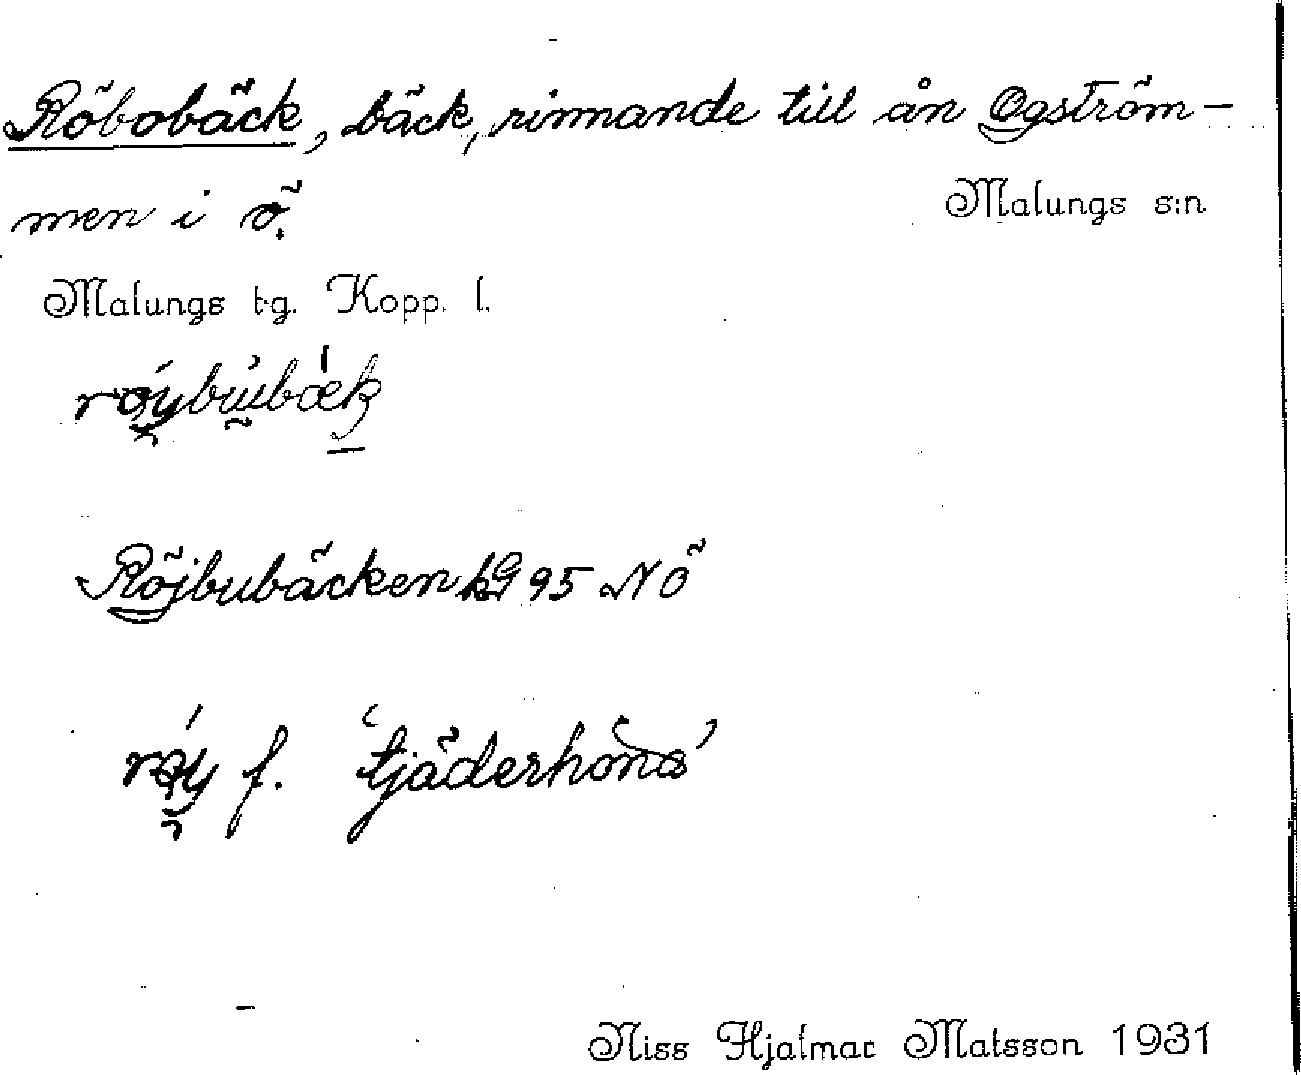 Röbobäck, bäck, rinnande till ån Ogström-
men i ö. Malungs s:n
Malungs tg. Kopp. l.
Röjbubäcken kG 95 NÖ
f. 'tjäderhöna'
Niss Hjalmar Matsson 1931